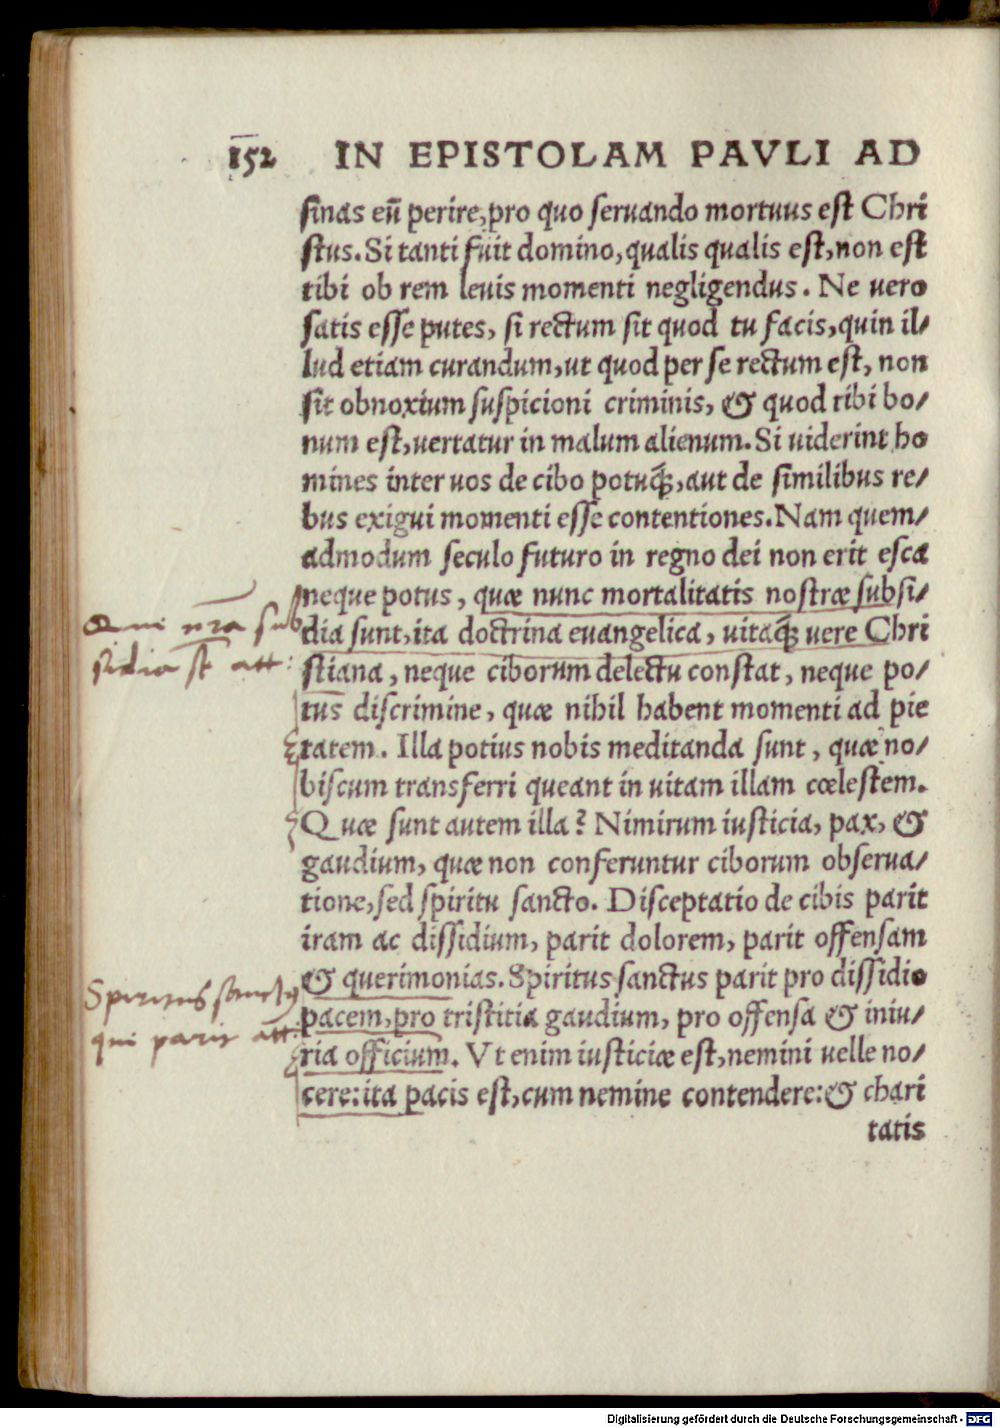 152 IN EPISTOLAM PAVLI AD
sinas eū perire, pro quo seruando mortuus est Chri
stus. Si tanti fuit domino, qualis qualis est, non est
tibi ob rem leuis momenti negligendus. Ne uero
satis esse putes, si rectum sit quod tu facis, quin il/
lud etiam curandum, ut quod per se rectum est, non
sit obnoxium suspicioni criminis, & quod tibi bo/
num est, uertatur in malum alienum. Si uiderint ho
mines inter uos de cibo potuq́;, aut de similibus re/
bus exigui momenti esse contentiones. Nam quem/
admodum seculo futuro in regno dei non erit esca
neque potus, quæ nunc mortalitatis nostræ subsi/
Quæ nr̄a sub
dia sunt, ita doctrina euangelica, uitaq́; uere Chri
sidia st att:
stiana, neque ciborum delectu constat, neque po/
tus discrimine, quæ nihil habent momenti ad pie
tatem. Illa potius nobis meditanda sunt, quæ no/
biscum transferri queant in uitam illam cœlestem.
Quæ sunt autem illa? Nimirum iusticia, pax, &
gaudium, quæ non conferuntur ciborum obserua/
tione, sed spiritu sancto. Disceptatio de cibis parit
iram ac dissidium, parit dolorem, parit offensam
& querimonias. Spiritus sanctus parit pro dissidio
Spiritus sanctus
pacem, pro tristitia gaudium, pro offensa & iniu/
qui parit att:
ria officium. Vt enim iusticiæ est, nemini uelle no/
cere: ita pacis est, cum nemine contendere: & chari
tatis
Digitalisierung gefördert durch die Deutsche Forschungsgemeinschaft - DFG